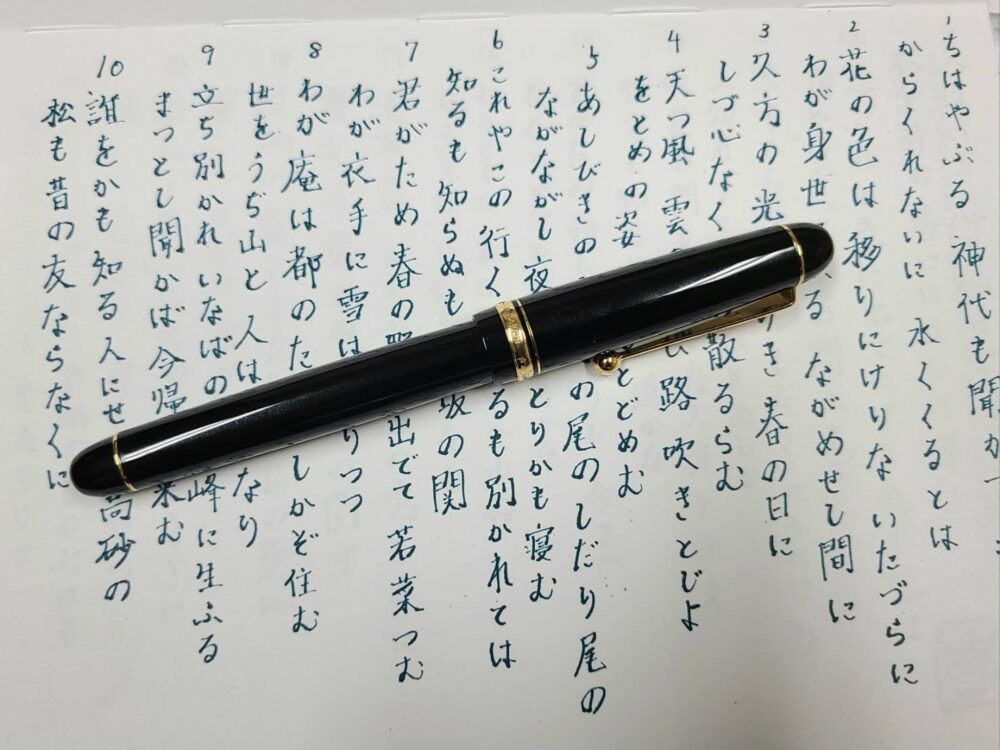 1 ちはやぶる 神代も聞か
からくれないに 水くくるとは
2 花の色は 移りにけりな いたづらに
わが身世 る ながめせし間に
3 久方の 光 き 春の日に
しづ心なく 散るらむ
4 天つ風 雲 路 吹きとじよ
をとめの姿 とどめむ
5 あしびきの の尾の しだり尾の
ながながし 夜 とりかも寝む
6 これやこの 行く るも 別かれては
知るも 知らぬも 坂の関
7 君がため 春の 出でて 若菜つむ
わが衣手に 雪は りつつ
8 わが庵は 都のた しかぞ住む
世をうぢ山と 人は なり
9 立ち別かれ いなばの 峰に生ふる
まつとし聞かば 今帰 来む
10 誰をかも 知る人にせ 高砂の
松も昔の 友ならなくに